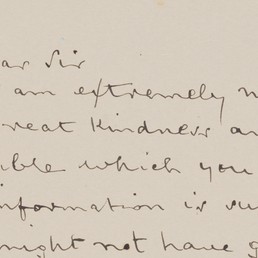 ar Sir
am extremely
reat Kindness an
ble which you
nformation is su
might not have g